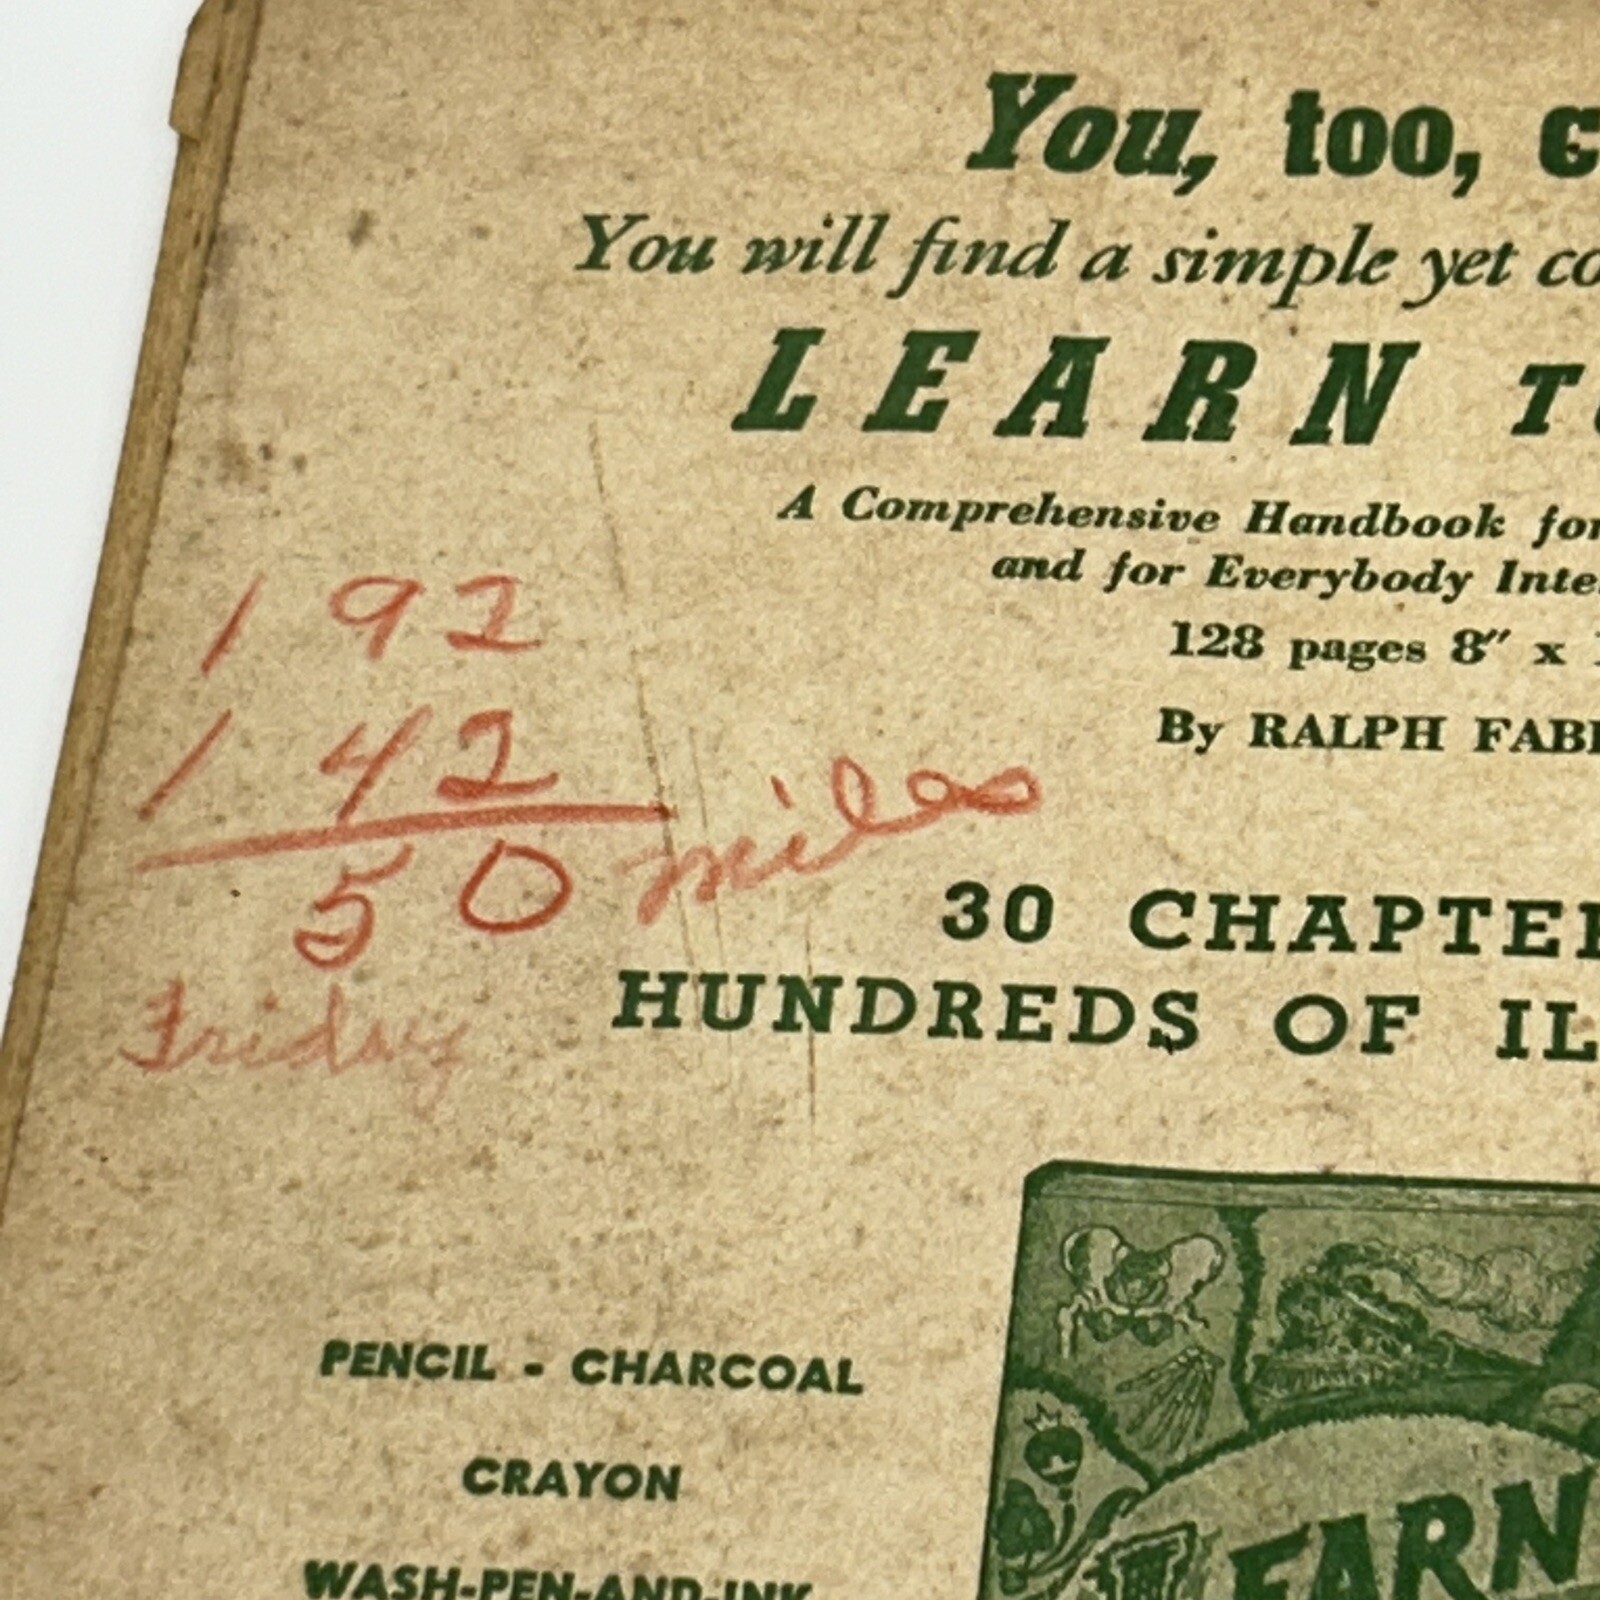 You, too, c
You will find a simple yet co
LEARN TO
A Comprehensive Handbook for
and for Everybody Inte
128 pages 8" x 1
By RALPH FAB
192
142
50 miles
Friday
30 CHAPTER
HUNDREDS OF IL
PENCIL - CHARCOAL
CRAYON
WASH-PEN-AND-INK
LEARN